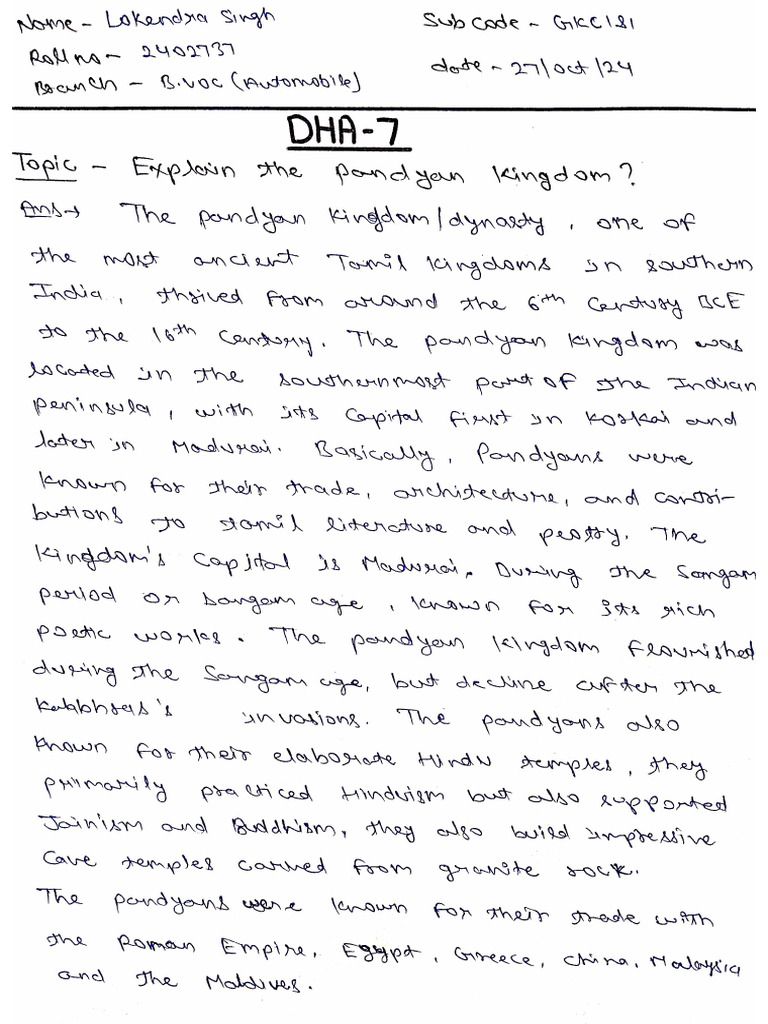 Name - Lokendra Singh
Sub code - GKC181
Roll no - 2402737
date - 27/oct/24
Branch - B.VOC (Automobile)
DHA-7
Topic - Explain the pandyan kingdom?
Ans→ The pandyan kingdom/dynasty, one of
the most ancient Tamil kingdoms in southern
India, thrived from around the 6th century BCE
to the 16th century. The pandyan kingdom was
located in the southernmost part of the Indian
peninsula, with its capital first in Korkai and
later in Madurai. Basically, Pandyans were
known for their trade, architecture, and contri-
butions to tamil literature and peotry. The
kingdom's capital is Madurai. During the Sangam
period or sangam age, known for its rich
poetic works. The pandyan kingdom flourished
during the Sangam age, but decline after the
invasions. The pandyans also
known for their elaborate Hindu temples, they
primarily practiced Hinduism but also supported
Jainism and Buddhism, they also build impressive
cave temples carved from granite rock.
The pandyans were known for their trade with
the Roman Empire, Egypt, Greece, China, Malaysia
and the Maldives.